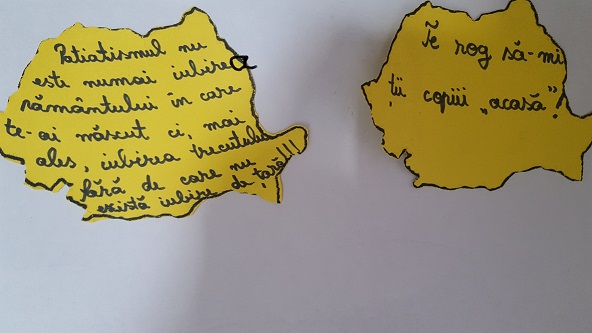 Patiatismul nu
este numai iubirea
pământului în care
te-ai născut ci, mai
ales, iubirea trecutului
fără de care nu
există iubire de țară!!!
Te rog să-mi
ții copiii „acasă”!